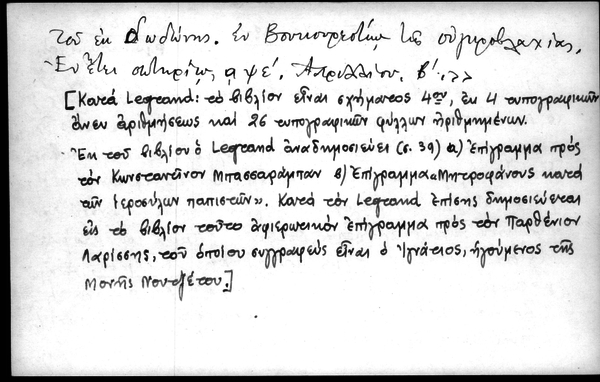 τοῦ ἐκ Δωδώνης. Ἐν Βουκουρεστίῳ τῆς οὑγκροβλαχίας,
Ἐν ἔτει σωτηρίῳ, αψε´. Ἀπριλλίου. β´.»
[Κατά Legrand: τό βιβλίον εἶναι σχήματος 4ον, ἐκ 4 τυπογραφικῶν
ἄνευ ἀριθμήσεως καί 26 τυπογραφικῶν φύλλων ἠριθμημένων.
Ἐκ τοῦ βιβλίου ὁ Legrand ἀναδημοσιεύει (σ. 39) α) Ἐπίγραμμα πρός
τόν Κωνσταντῖνον Μπασσαράμπαν β) Ἐπίγραμμα «Μητροφάνους κατά
τῶν ἱεροσύλων παπιστῶν». Κατά τόν Legrand ἐπίσης δημοσιεύεται
εἰς τό βιβλίον τοῦτο ἀφιερωτικόν ἐπίγραμμα πρός τόν Παρθένιον
Λαρίσσης, τοῦ ὁποίου συγγραφεύς εἶναι ὁ Ἰγνάτιος, ἡγούμενος τῆς
Μονῆς Νουτζέτου.]